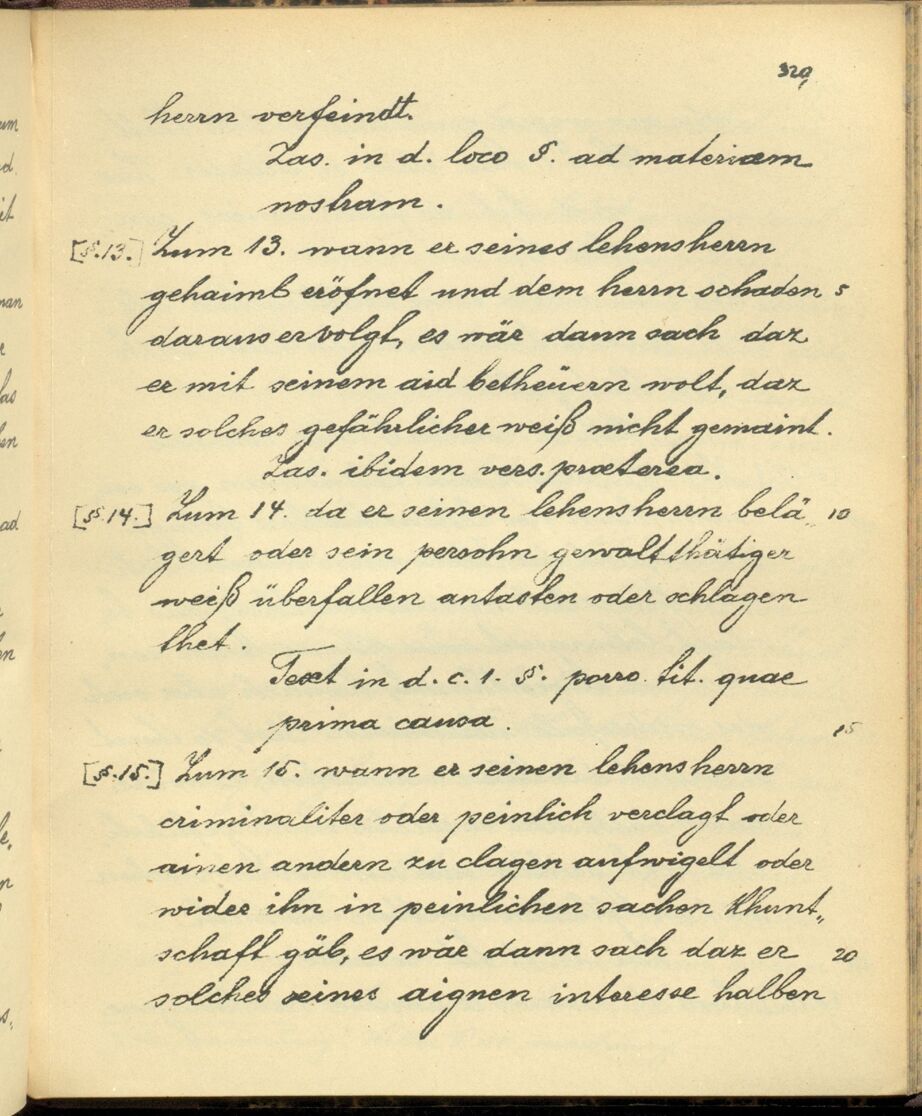 320
herrn verfeindt.
Zas. in d. loco §. ad materiam
nostram.
[§.13.] Zum 13. wann er seines lehensherrn
gehaimb eröfnet und dem herrn schaden 5
daraus ervolgt, es wär dann sach daz
er mit seinem aid betheüern wolt, daz
er solches gefährlicher weiß nicht gemaint.
Zas. ibidem vers. præterea.
[§.14.] Zum 14. da er seinen lehensherrn belä„ 10
gert oder sein persohn gewaltthätiger
weiß überfallen antasten oder schlagen
thet.
Text in d. c. 1. §. porro tit. quae
prima causa. 15
[§.15.] Zum 15. wann er seinen lehensherrn
criminaliter oder peinlich verclagt oder
ainen andern zu clagen aufwigelt oder
wider ihn in peinlichen sachen khunt„
schaft gäb, es wär dann sach daz er 20
solches seines aignen interesse halben